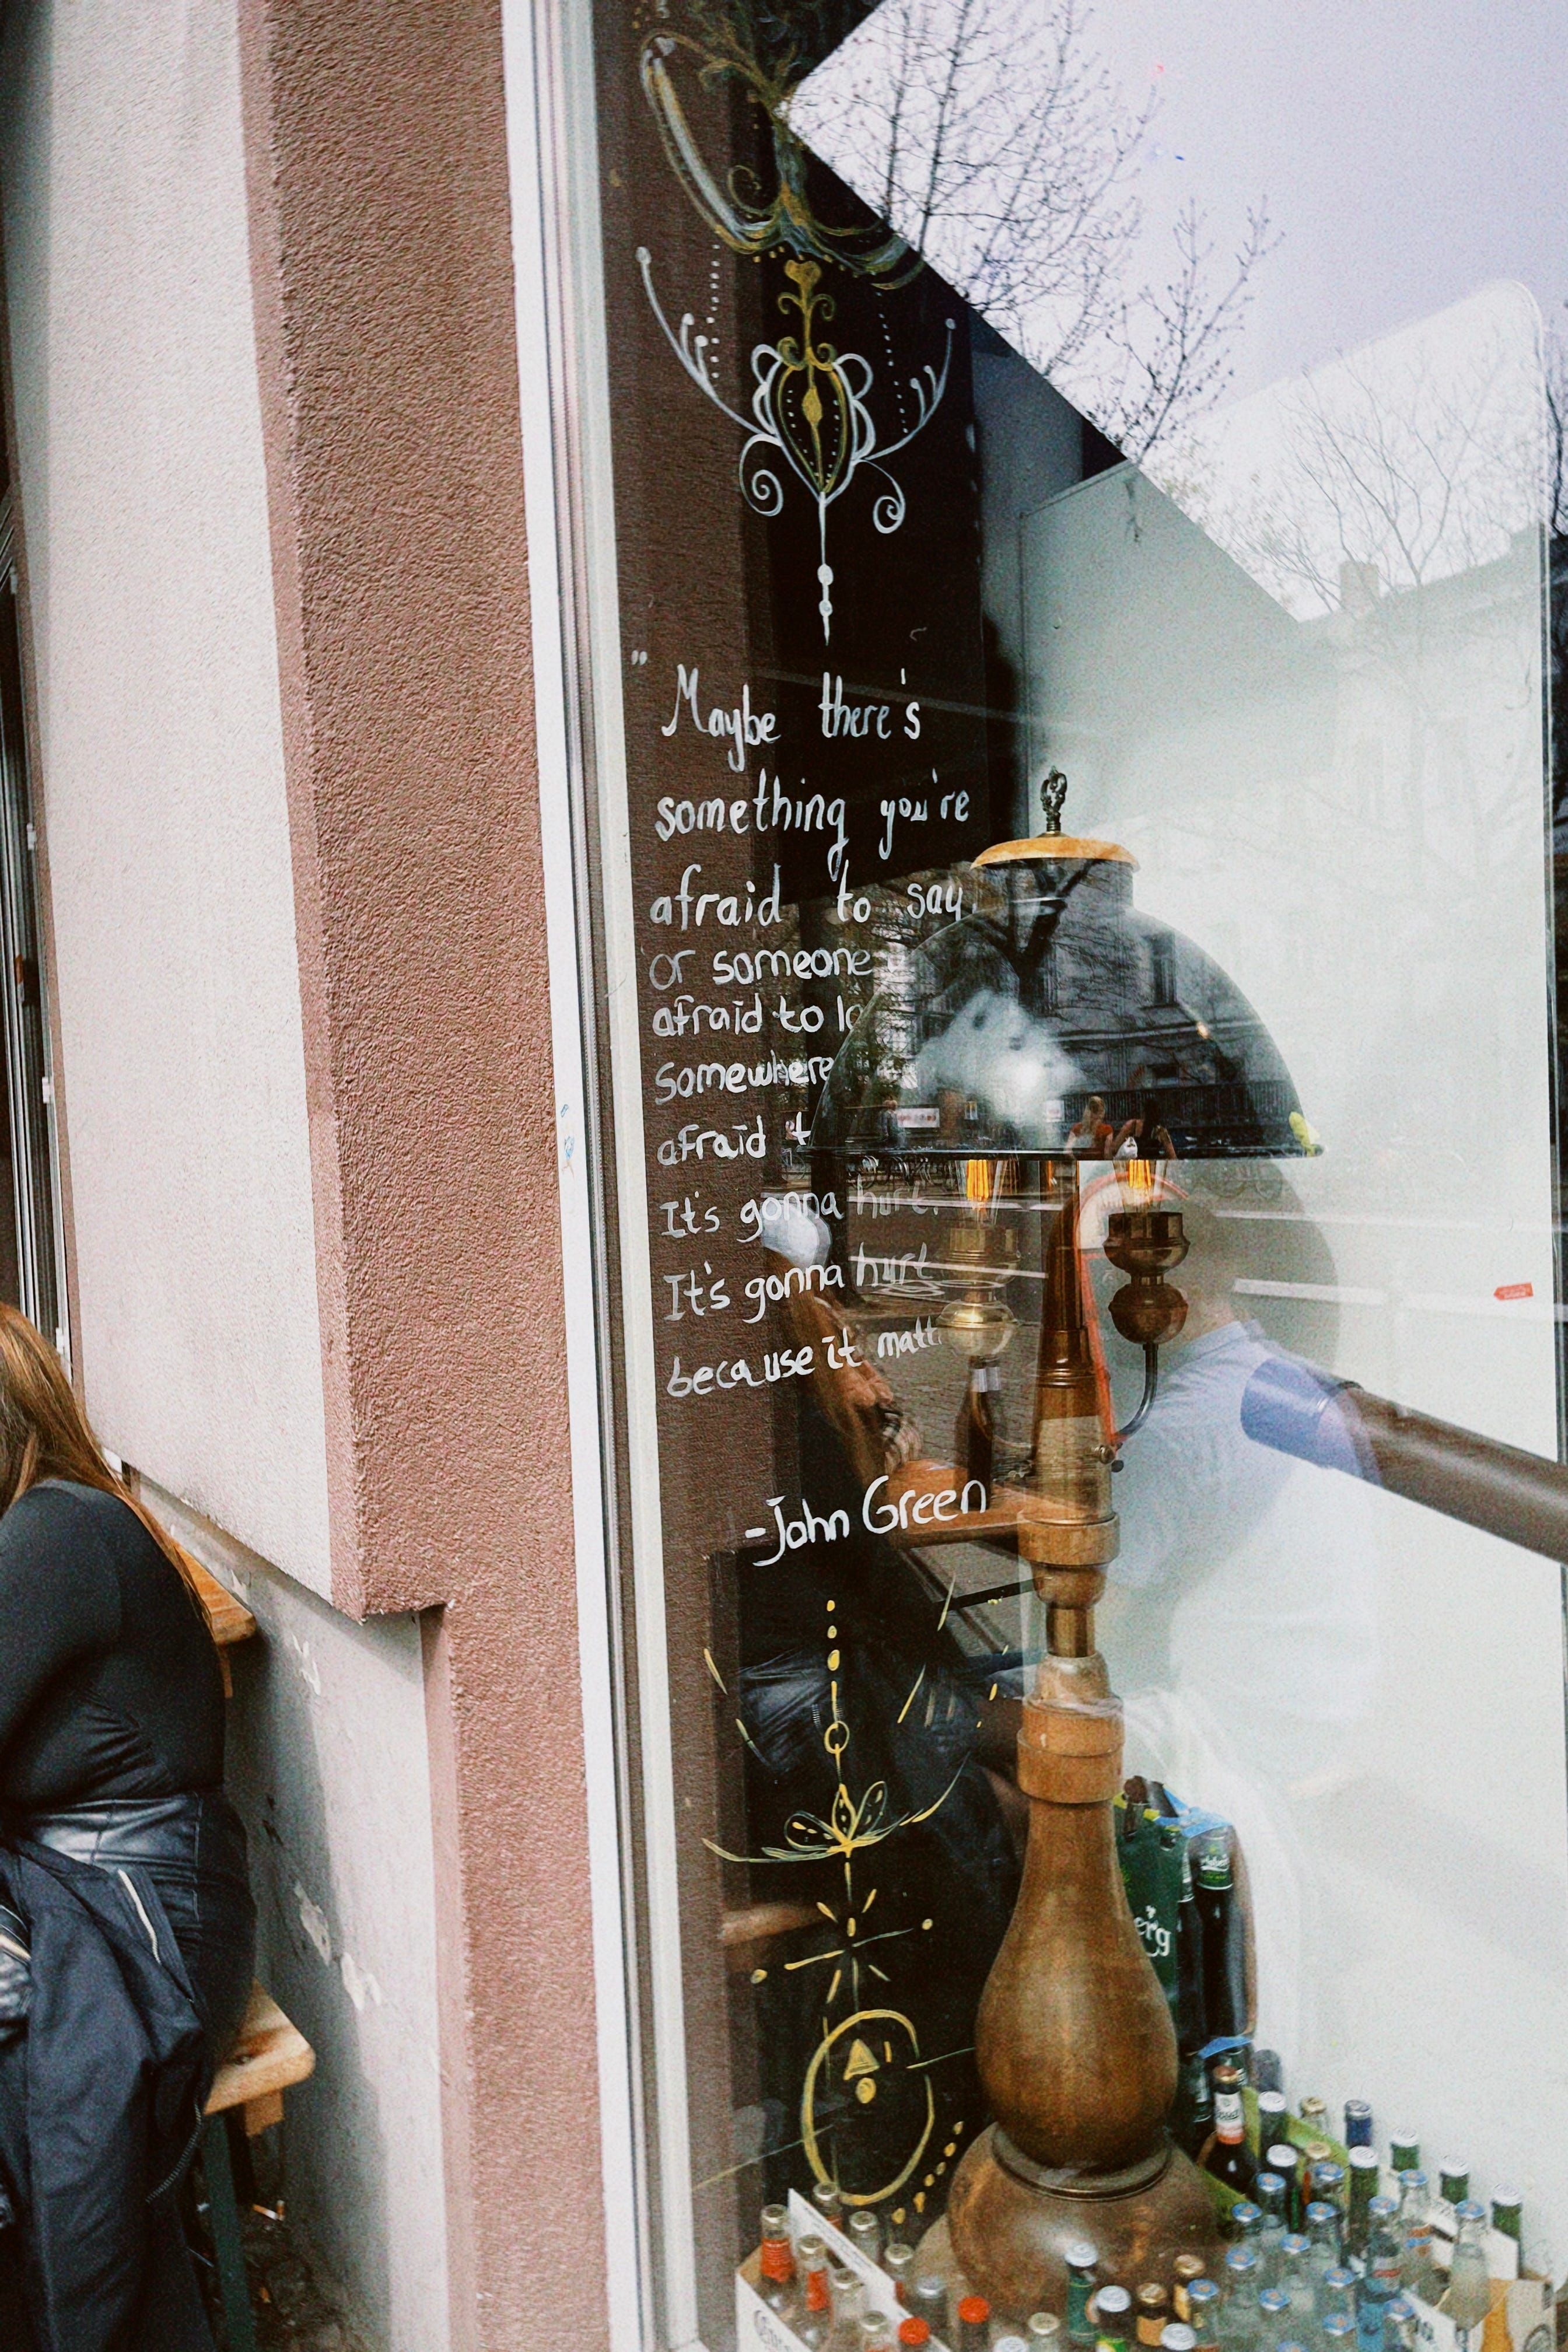 " Maybe there's
something you're
afraid to say,
or someone
afraid to
somewhere
afraid
It's gonna hurt.
It's gonna hurt
because it
-John Green